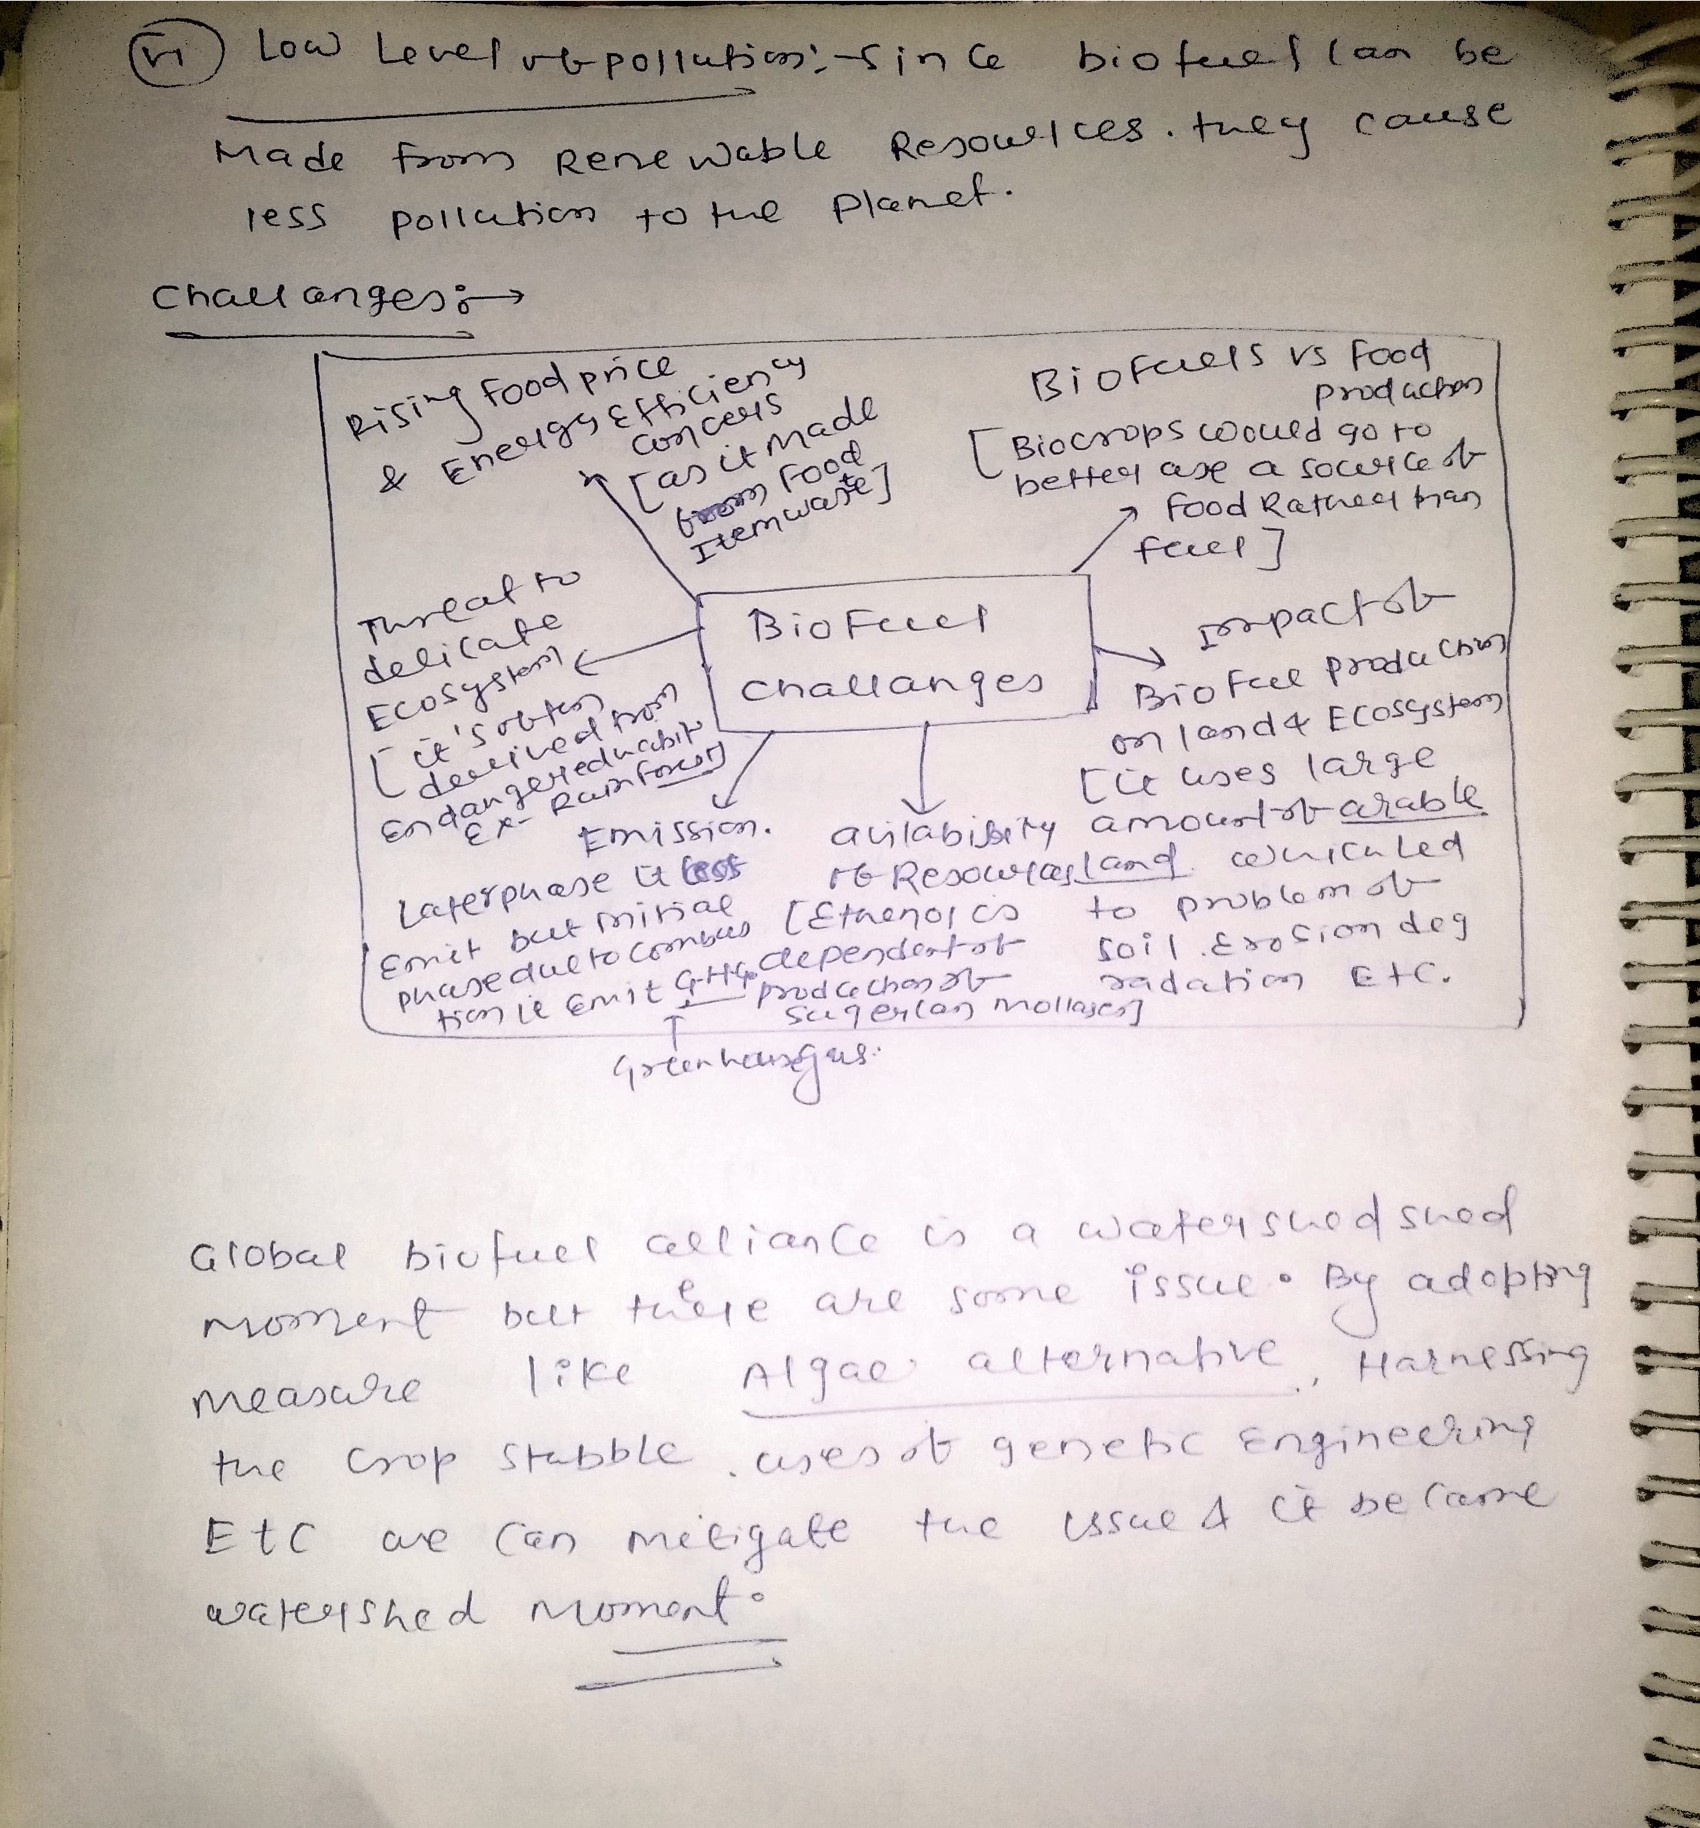 vi Low Level of pollution:- Since biofuel can be
Made from Renewable Resources. they cause
less pollution to the planet.
Challanges:→
Rising Food price
& Energy Efficiency
concers
[as it made
from Food
Item waste]
Biofuels vs Food
production
[Biocrops would go to
better use a source of
Food Rather than
fuel]
Threat to
delicate
Ecosystem
[it's often
derived from
endangered habit
Ex- Rainforest]
BioFuel
challanges
Impact of
BioFuel production
on land & Ecosystem
[it uses large
amount of arable
land which led
to problem of
soil Erosion deg
radation Etc.
Emission.
Later phase it less
Emit but initial
phase due to combus
tion it Emit GHG
Greenhouse gas.
avilability
of Resources
[Ethenol is
dependent of
production of
sugercan mollases]
Global biofuel alliance is a watershed shed
moment but there are some issue. By adopting
measure like Algae alternative, Harnessing
the crop stubble, uses of genetic Engineering
Etc we can mitigate the issue & it became
watershed moment.